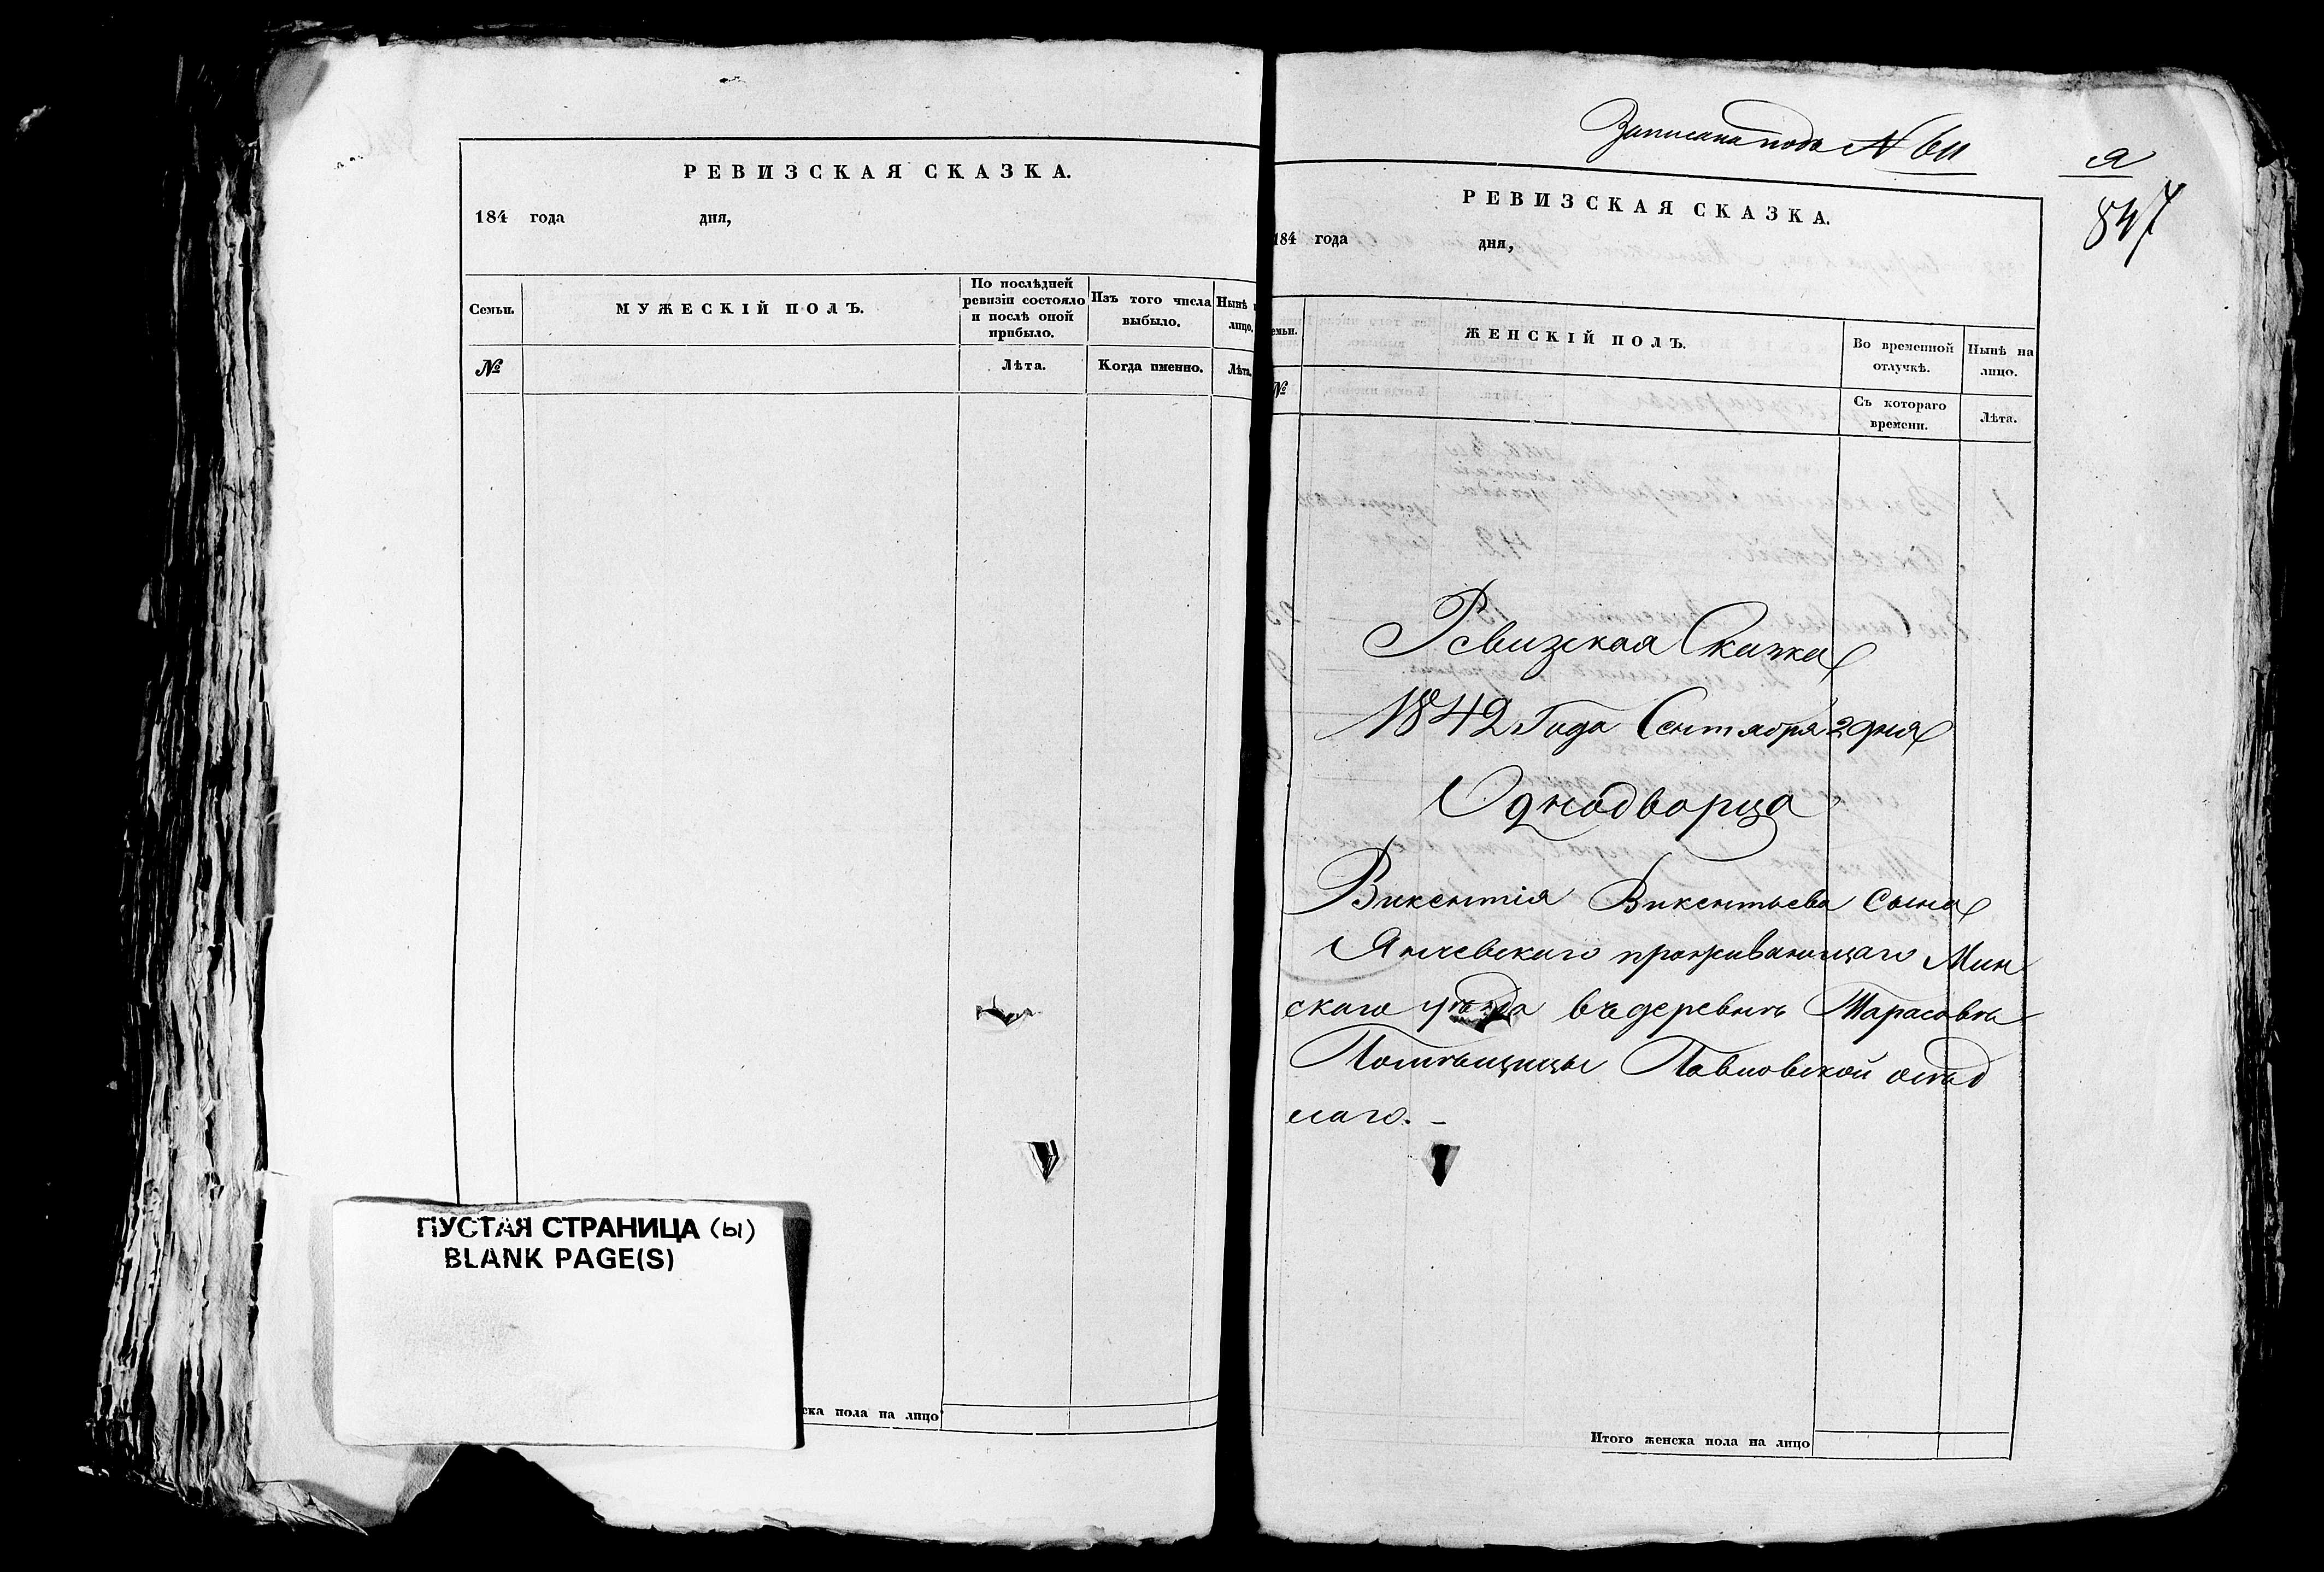 РЕВИЗСКАЯ СКАЗКА.
184 года дня,
Семьи.
МУЖЕСКІЙ ПОЛЪ.
По послѣдней
ревизіи состояло
и послѣ оной
прибыло.
Изъ того числа
выбыло.
Нынѣ
лицо.
№
Лѣта.
Когда именно.
Лѣта.
ПУСТАЯ СТРАНИЦА (ы)
BLANK PAGE(S)
ска пола на лицо
Записана подъ №
Я
847
РЕВИЗСКАЯ СКАЗКА.
184 года дня,
емьи.
ЖЕНСКІЙ ПОЛЪ.
Во временной
отлучкѣ.
Нынѣ на
лицо.
№
Съ котораго
времени.
Лѣта.
Ревизская Сказка
1842 Года Сентября 2 дня
Однодворца
Викентія Викентьева сына
проживающаго Мин
скаго уѣзда въ деревнѣ Тарасовѣ
Помѣщицы Павловской осѣд
лаго. –
Итого женска пола на лицо